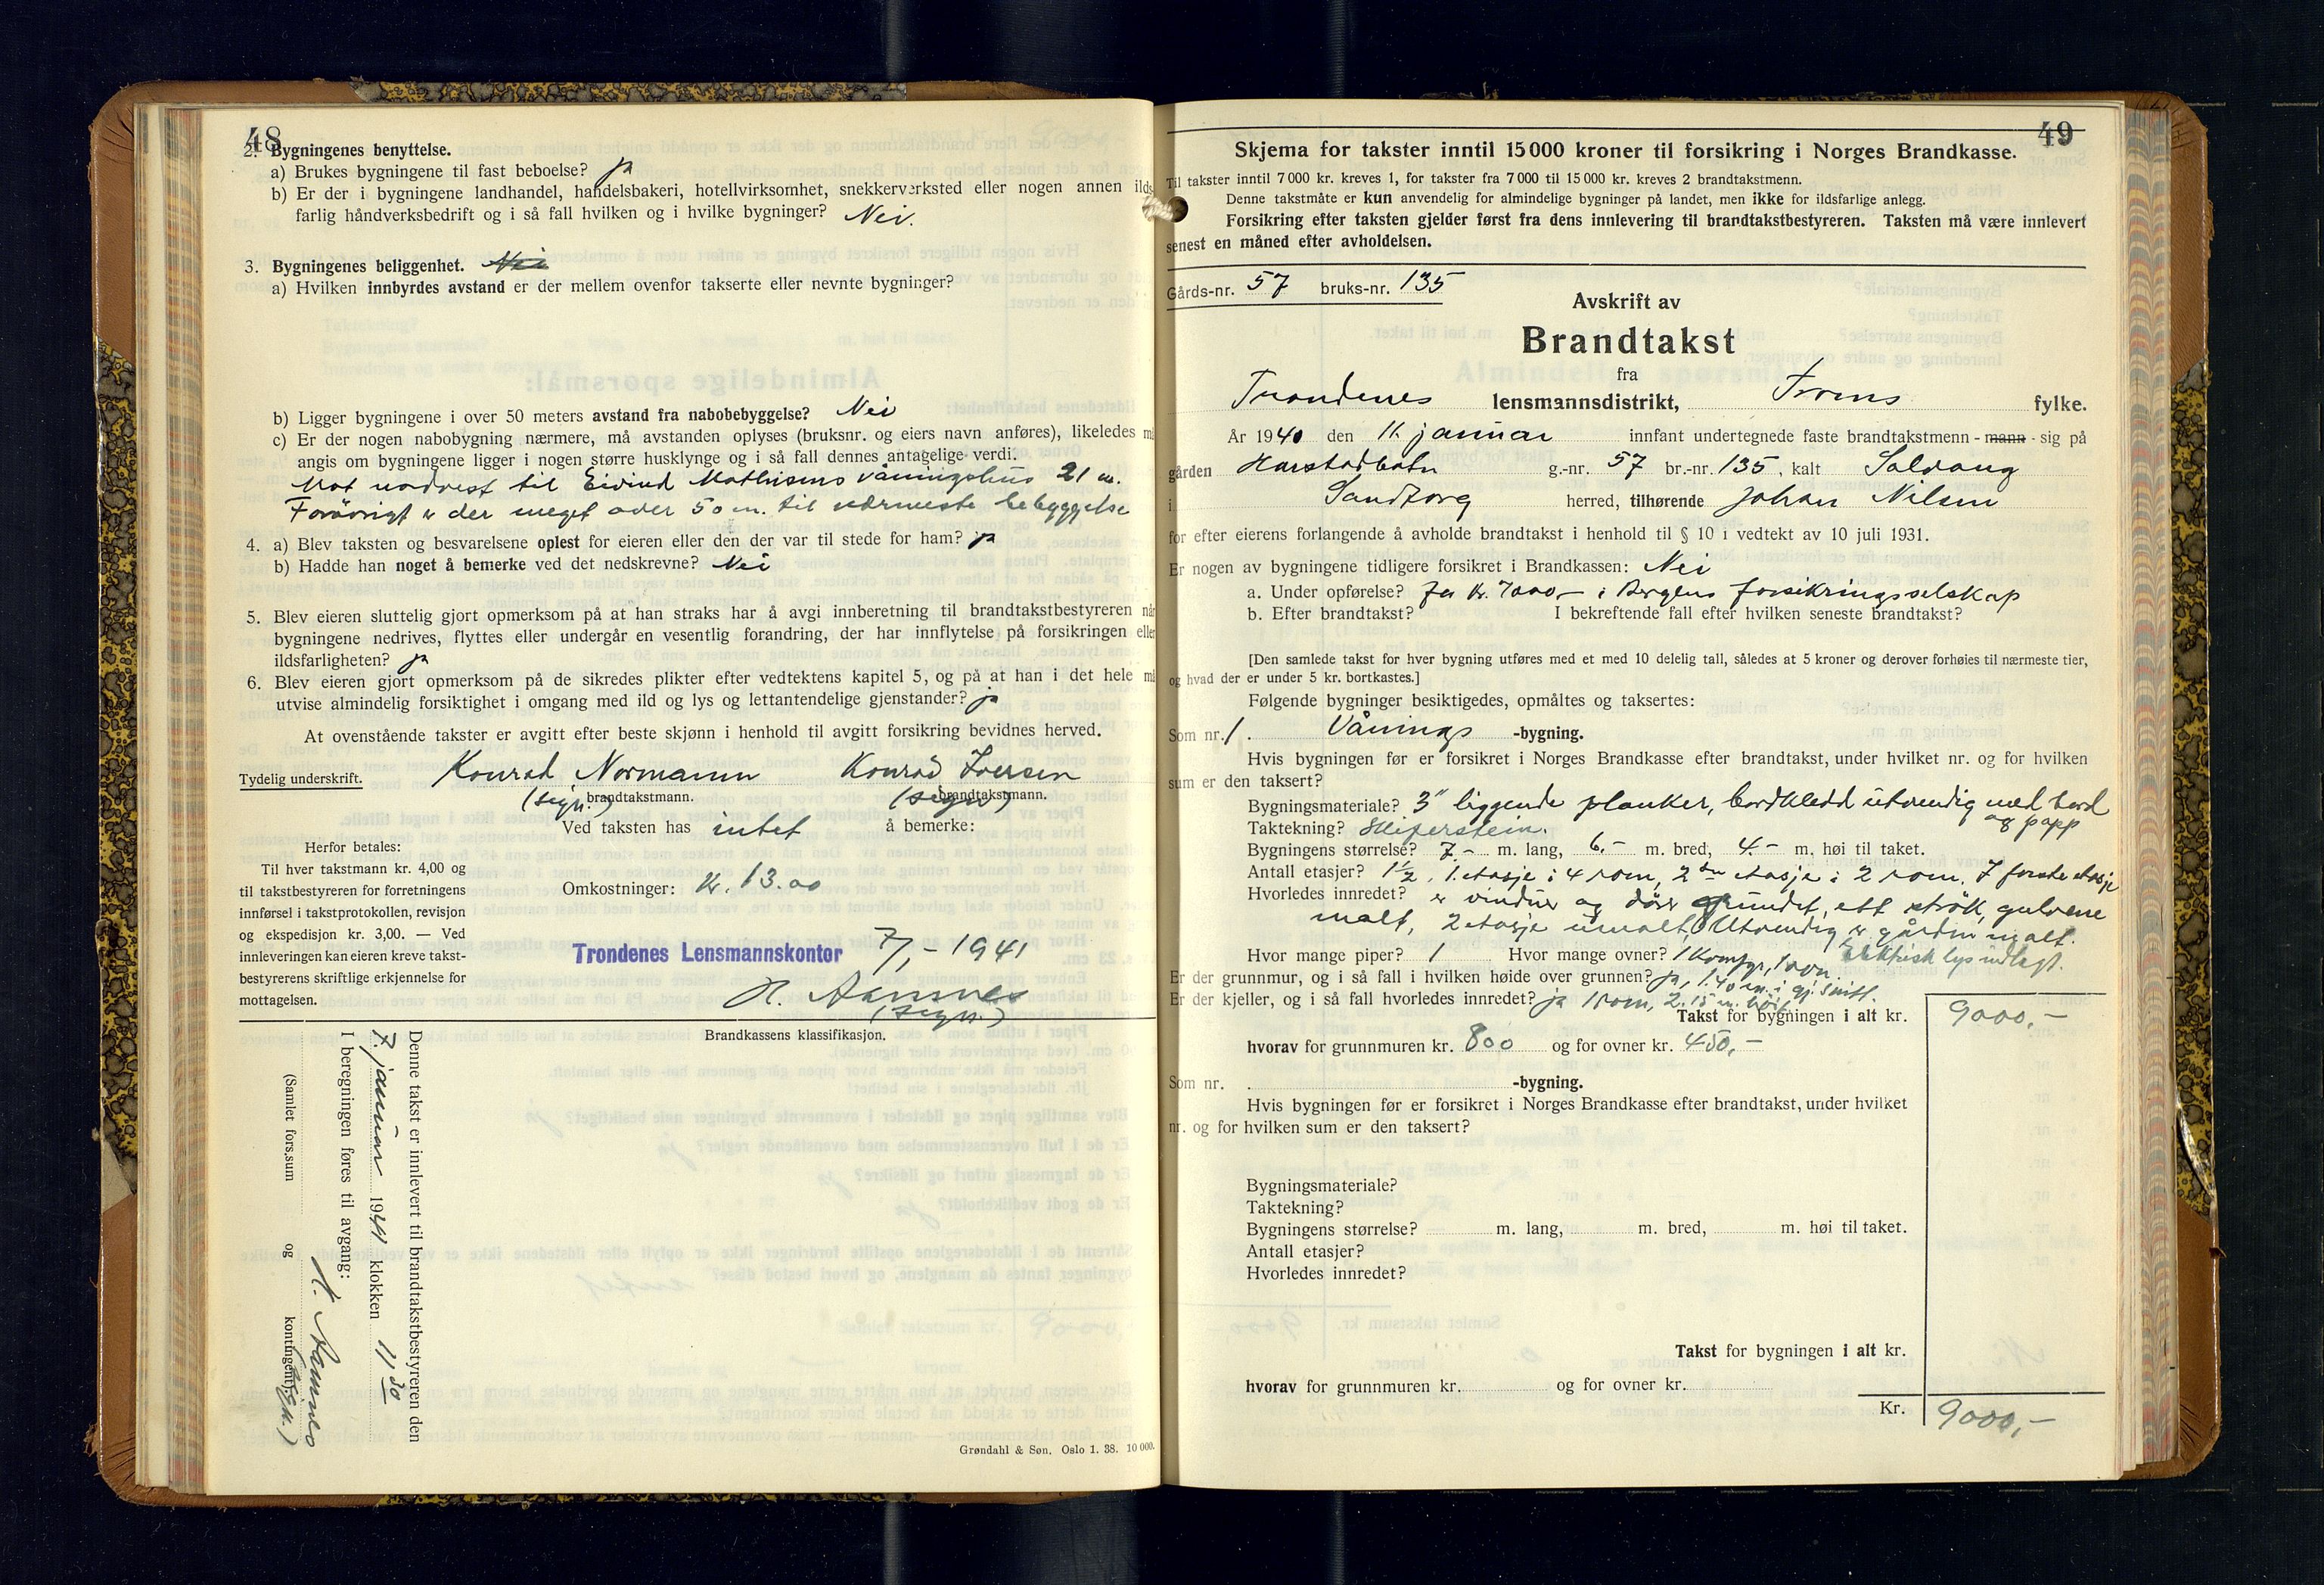 48
2. Bygningenes benyttelse.
a) Brukes bygningene til fast beboelse? ja
b) Er der i bygningene landhandel, handelsbakeri, hotellvirksomhet, snekkerverksted eller nogen annen ilds-
farlig håndverksbedrift og i så fall hvilken og i hvilke bygninger? Nei.
3. Bygningenes beliggenhet. Nei
a) Hvilken innbyrdes avstand er der mellem ovenfor takserte eller nevnte bygninger?
b) Ligger bygningene i over 50 meters avstand fra nabobebyggelse? Nei
c) Er der nogen nabobygning nærmere, må avstanden oplyses (bruksnr. og eiers navn anføres), likeledes m
angis om bygningene ligger i nogen større husklynge og i så fall dennes antagelige verdi.
Mot nordvest til Eivind Mathisens våningshus 21 m.
Forövrigt er der meget over 50 m. til nærmeste bebyggelse
4. a) Blev taksten og besvarelsene oplest for eieren eller den der var til stede for ham? ja
b) Hadde han noget å bemerke ved det nedskrevne? Nei
5. Blev eieren sluttelig gjort opmerksom på at han straks har å avgi innberetning til brandtakstbestyreren når
bygningene nedrives, flyttes eller undergår en vesentlig forandring, der har innflytelse på forsikringen eller
ildsfarligheten? ja
6. Blev eieren gjort opmerksom på de sikredes plikter efter vedtektens kapitel 5, og på at han i det hele m
utvise almindelig forsiktighet i omgang med ild og lys og lettantendelige gjenstander? ja
At ovenstående takster er avgitt efter beste skjønn i henhold til avgitt forsikring bevidnes herved.
Tydelig underskrift. Konrad Normann Konrad Iversen
(sign.) brandtakstmann. (sign) brandtakstmann.
Ved taksten has intet å bemerke:
Herfor betales:
Til hver takstmann kr. 4,00 og
til takstbestyreren for forretningens
innførsel i takstprotokollen, revisjon
og ekspedisjon kr. 3,00. — Ved
innleveringen kan eieren kreve takst-
bestyrerens skriftlige erkjennelse for
mottagelsen.
Omkostninger: Kr. 13.00
Trondenes Lensmannskontor 7/1 - 1941
H. Aamnes
(sign.)
Brandkassens klassifikasjon.
Denne takst er innlevert til brandtakstbestyreren den
7. januar 1941 klokken 11 30
I beregningen føres til avgang:
H. Aamnes
(sign.)
(Samlet fors.sum og kontingent)
Grøndahl & Søn. Oslo 1. 38. 10 000.
49
Skjema for takster inntil 15 000 kroner til forsikring i Norges Brandkasse.
Til takster inntil 7 000 kr. kreves 1, for takster fra 7 000 til 15 000 kr. kreves 2 brandtakstmenn.
Denne takstmåte er kun anvendelig for almindelige bygninger på landet, men ikke for ildsfarlige anlegg.
Forsikring efter taksten gjelder først fra dens innlevering til brandtakstbestyreren. Taksten må være innlevert
senest en måned efter avholdelsen.
Gårds-nr. 57 bruks-nr. 135
Avskrift av
Brandtakst
fra
Trondenes lensmannsdistrikt, Troms fylke.
År 1940 den 11. januar innfant undertegnede faste brandtakstmenn - mann - sig på
gården Harstadbotn g.-nr. 57 br.-nr. 135, kalt Solvang
i Sandtorg herred, tilhørende Johan Nilsen
for efter eierens forlangende å avholde brandtakst i henhold til § 10 i vedtekt av 10 juli 1931.
Er nogen av bygningene tidligere forsikret i Brandkassen: Nei
a. Under opførelse? for kr. 7000,- i Bergens forsikringsselskap
b. Efter brandtakst? I bekreftende fall efter hvilken seneste brandtakst?
[Den samlede takst for hver bygning utføres med et med 10 delelig tall, således at 5 kroner og derover forhøies til nærmeste tier,
og hvad der er under 5 kr. bortkastes.]
Følgende bygninger besiktigedes, opmåltes og taksertes:
Som nr. 1. Vånings -bygning.
Hvis bygningen før er forsikret i Norges Brandkasse efter brandtakst, under hvilket nr. og for hvilken
sum er den taksert?
Bygningsmateriale? 3" liggende planker, bordkledd utvendig med bord
og papp
Taktekning? Skiferstein.
Bygningens størrelse? 7.- m. lang, 6.- m. bred, 4.- m. høi til taket.
Antall etasjer? 1 1/2. 1. etasje: 4 rom, 2den etasje: 2 rom. I første etasje
Hvorledes innredet? er vinduer og dörer grundet, ett strök, gulvene
malt, 2 etasje umalt. Utvendig er gården malt.
Hvor mange piper? 1 Hvor mange ovner? 1 komfyr, 1 ovn. Elektrisk lys indlagt.
Er der grunnmur, og i så fall i hvilken høide over grunnen? ja, 1.40 m. i gj.snitt.
Er der kjeller, og i så fall hvorledes innredet? ja 1 rom, 2.15 m. höi
Takst for bygningen i alt kr. 9000,-
hvorav for grunnmuren kr. 800 og for ovner kr. 450,-
Som nr. . -bygning.
Hvis bygningen før er forsikret i Norges Brandkasse efter brandtakst, under hvilket
nr. og for hvilken sum er den taksert?
Bygningsmateriale?
Taktekning?
Bygningens størrelse? m. lang, m. bred, m. høi til taket.
Antall etasjer?
Hvorledes innredet?
Takst for bygningen i alt kr.
hvorav for grunnmuren kr. og for ovner kr.
Kr. 9000,-